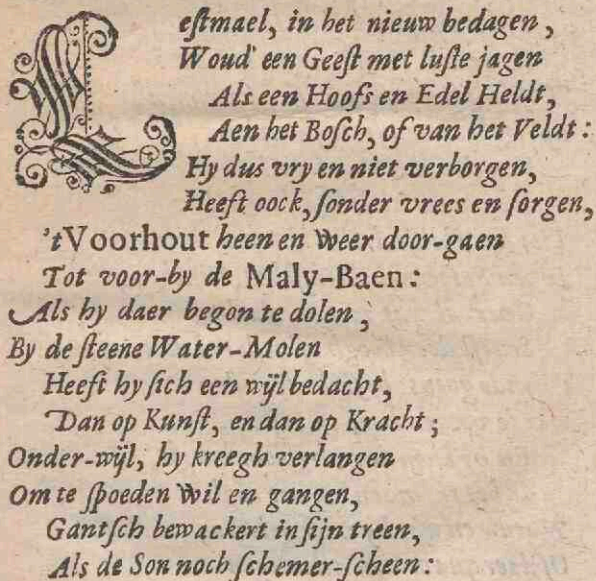 Lestmael, in het nieuw bedagen,
Woud' een Geest met luste jagen
Als een Hoofs en Edel Heldt,
Aen het Bosch, of van het Veldt:
Hy dus vry en niet verborgen,
Heeft oock, sonder vrees en sorgen,
't Voorhout heen en weer door-gaen
Tot voor-by de Maly-Baen:
Als hy daer begon te dolen,
By de steene Water-Molen
Heeft hy sich een wijl bedacht,
Dan op Kunst, en dan op Kracht;
Onder-wijl, hy kreegh verlangen
Om te spoeden wil en gangen,
Gantsch bewackert in sijn treen,
Als de Son noch schemer-scheen: